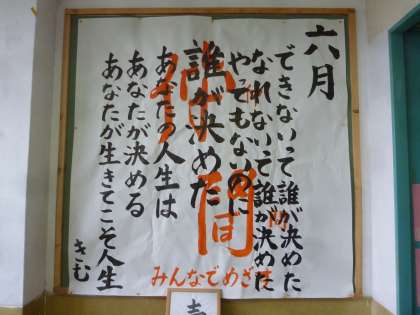 六月
できないって 誰が決めた
なれないって 誰が決めた
やってもないのに
誰が決めた
あなたの人生は
あなたが決める
あなたが生きてこそ人生
きむ
間
みんなでめざ